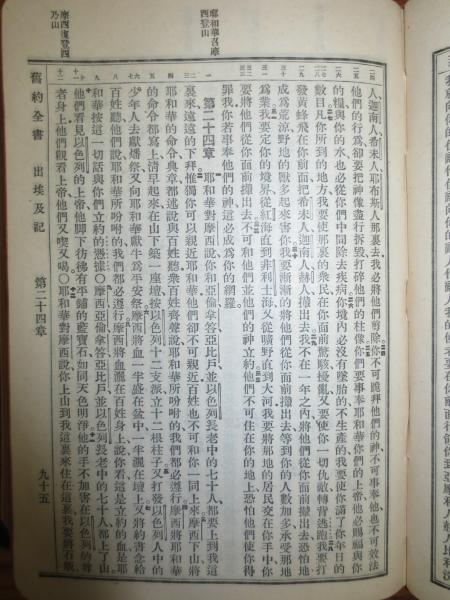 人迦南人、希未人、耶布斯人那裏去我必將他們剪除你不可跪拜他們的神不可事奉他也不可效法
他們的行爲卻要把神像盡行拆毀打碎他們的柱像你們要事奉耶和華你們的上帝他必賜福與你
的糧與你的水也必從你們中間除去疾病你境內必沒有墜胎的不生產的我要使你滿了你年日的
數目凡你所到的地方我要使那裏的衆民在你面前驚駭擾亂又要使你一切仇敵轉背逃跑我要打
發黃蜂飛在你前面把希未人、迦南人、赫人攆出去我不在一年之內將他們從你面前攆出去恐怕地
成爲荒涼野地的獸多起來害你我要漸漸的將他們從你面前攆出去等到你的人數加多承受那地
爲業我要定你的境界從紅海直到非利士海又從曠野直到大河我要將那地的居民交在你手中你
要將他們從你面前攆出去不可和他們並他們的神立約他們不可住在你的地上恐怕他們使你得
罪我你若事奉他們的神這必成爲你的網羅
耶和華召摩西登山
第二十四章 耶和華對摩西說你和亞倫拿答亞比戶並以色列長老中的七十人都要上到我這
裏來遠遠的下拜惟獨你可以親近耶和華他們卻不可親近百姓也不可和你一同上來摩西下山將
耶和華的命令典章都述說與百姓聽衆百姓齊聲說耶和華所吩咐的我們都必遵行摩西將耶和華
的命令都寫上清早起來在山下築一座壇按以色列十二支派立十二根柱子又打發以色列人中的
少年人去獻燔祭又向耶和華獻牛爲平安祭摩西將血一半盛在盆中一半灑在壇上又將約書念給
百姓聽他們說耶和華所吩咐的我們都必遵行摩西將血灑在百姓身上說你看這是立約的血是耶
和華按這一切話與你們立約的憑據○摩西、亞倫、拿答、亞比戶並以色列長老中的七十人都上了山
他們看見以色列的上帝他腳下彷彿有平鋪的藍寶石如同天色明淨他的手不加害在以色列的尊
者身上他們觀看上帝他們又喫又喝○耶和華對摩西說你上山到我這裏來住在這裏我要將石版
摩西復登西乃山
舊約全書 出埃及記 第二十四章 九十五